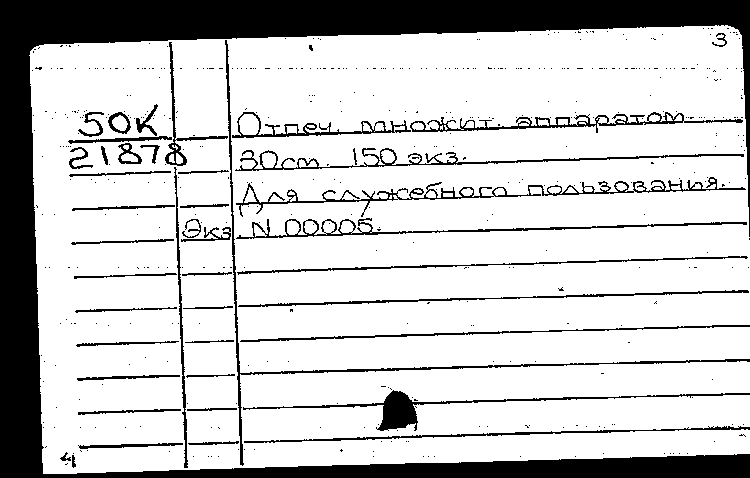 3
50К Отпеч. множит. аппаратом.
21878 30см. 150 экз.
Для служебного пользования.
Экз. N 00005.
4